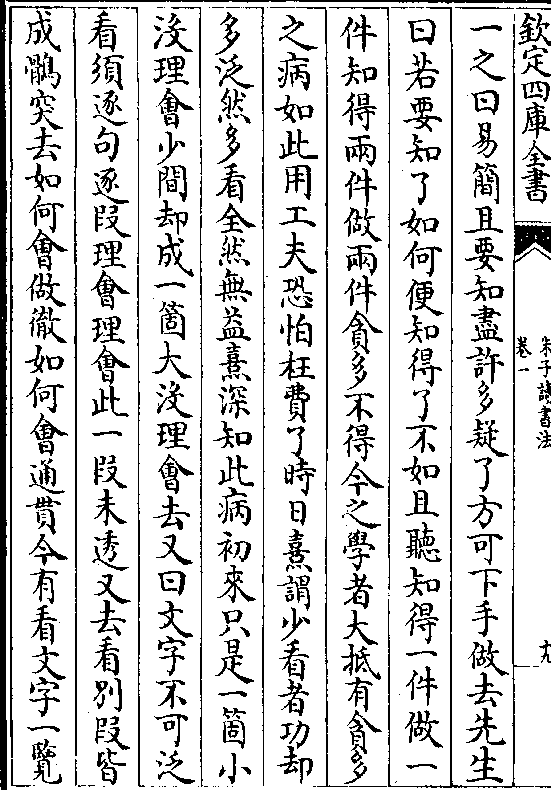 欽定四庫全書
朱子讀書法
卷一
十九
一之曰易簡且要知盡許多疑了方可下手做去先生
曰若要知了如何便知得了不如且聽知得一件做一
件知得兩件做兩件貪多不得今之學者大抵有貪多
之病如此用工夫恐怕枉費了時日熹謂少看者功却
多泛然多看全然無益熹深知此病初來只是一箇小
沒理會少間却成一箇大沒理會去又曰文字不可泛
看須逐句逐段理會理會此一段未透又去看別段皆
成鶻突去如何會做徹如何會通貫今有看文字一覽